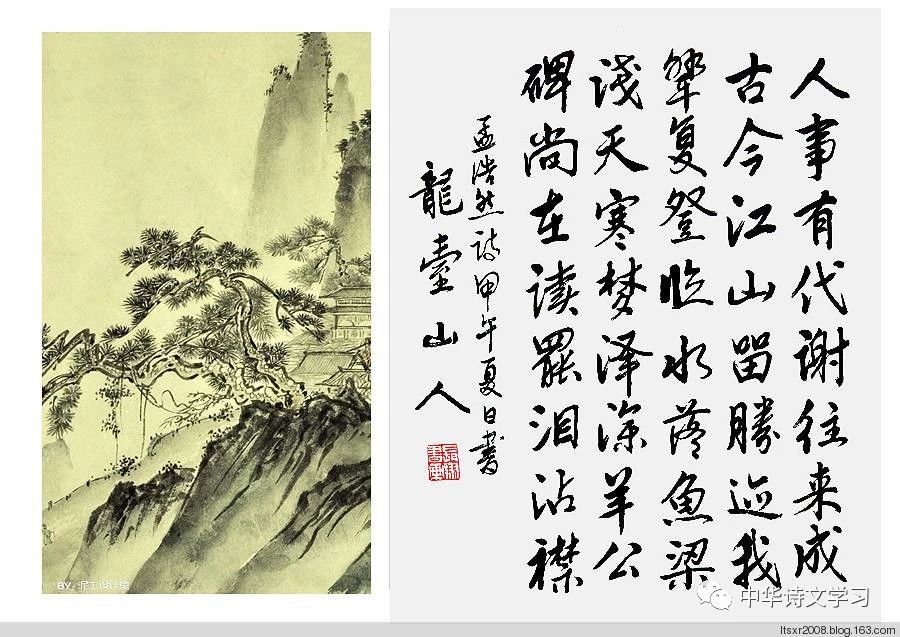 人事有代谢往来成
古今江山留勝迹我
辈复登临水落魚梁
浅天寒梦泽深羊公
碑尚在读罷泪沾襟
孟浩然诗甲午夏日書
龍臺山人
BY:
中华诗文学习
ltsxr2008.blog.163.com